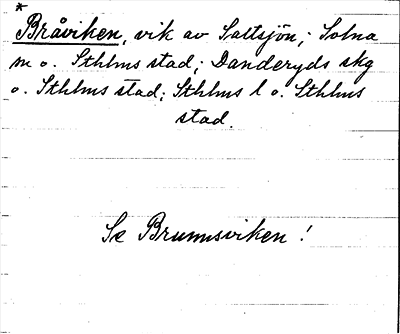 *
Bråviken, vik av Saltsjön; Solna
m o. Sthlms stad; Danderyds skg
o. Sthlms stad; Sthlms l o. Sthlms
stad.
Se Brunnsviken!